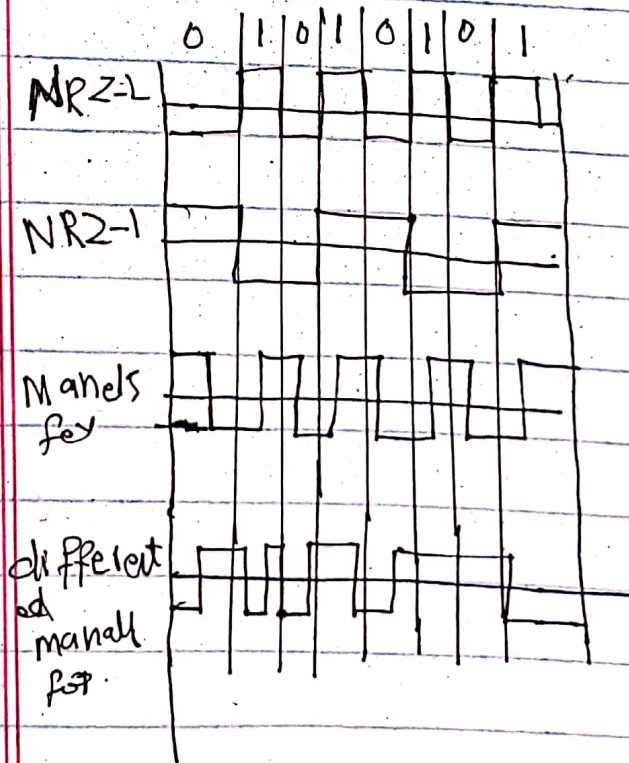 0 1 0 1 0 1 0 1
NRZ-L
NRZ-I
Manels
fey
different
ed
manall
for.